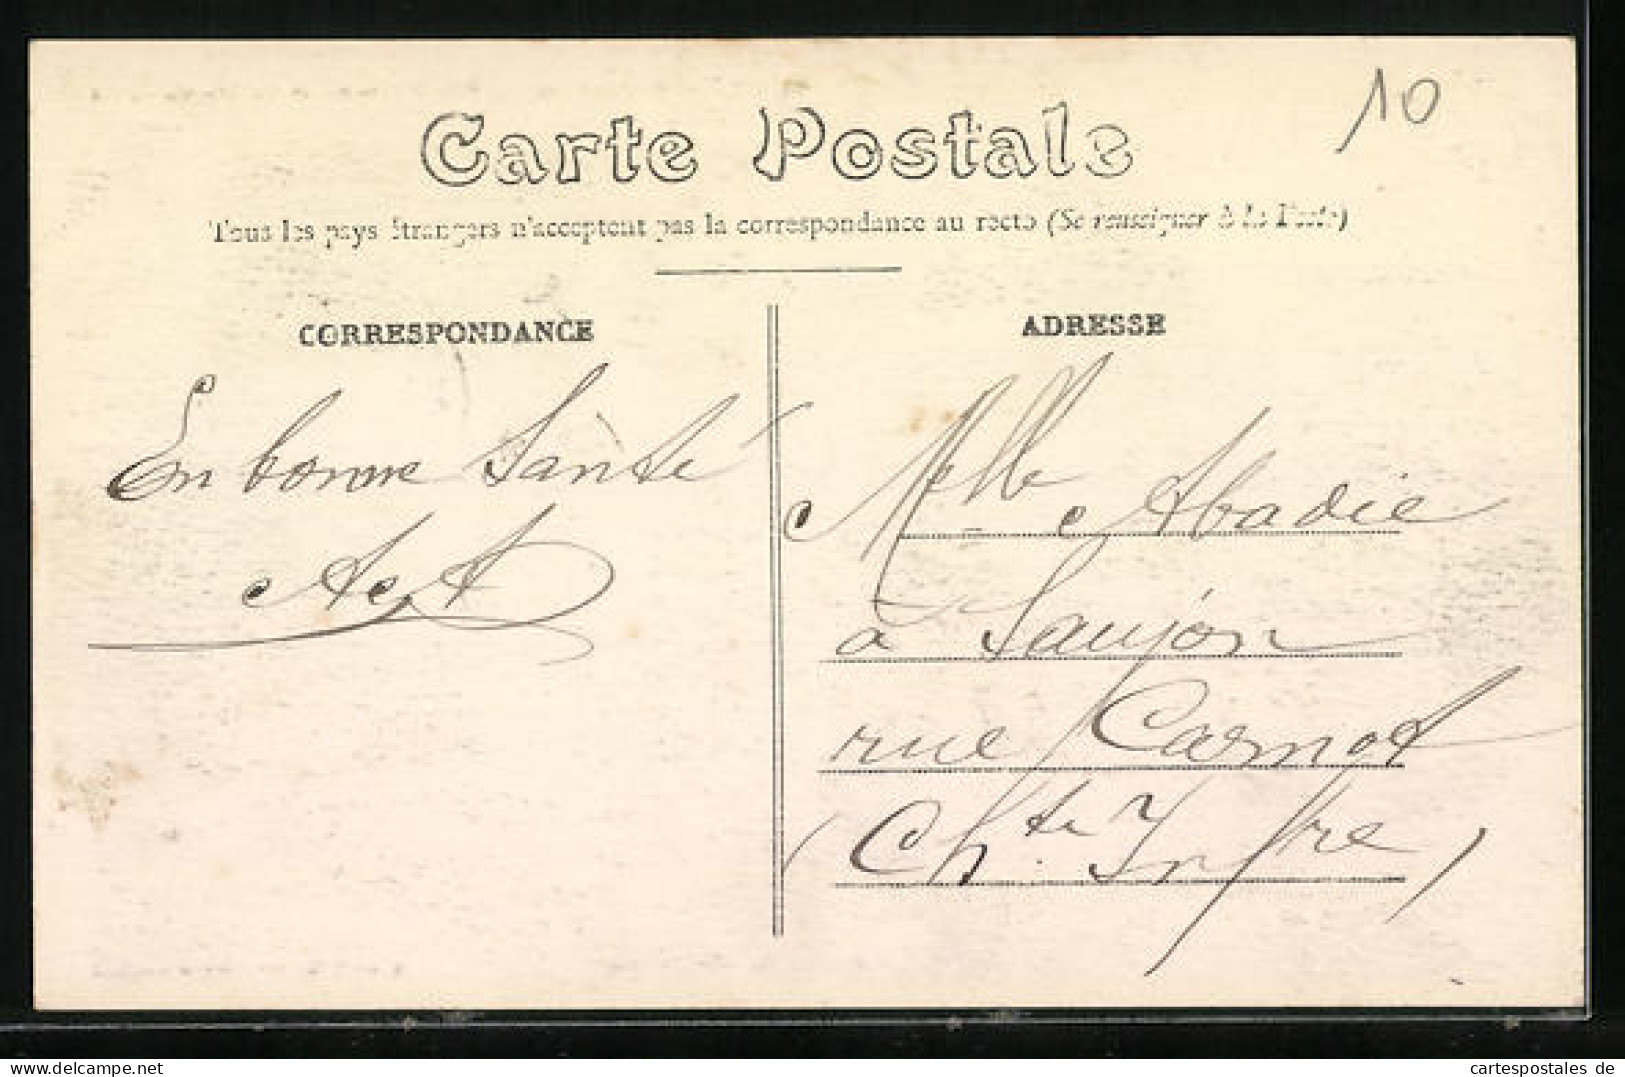 10
Carte Postale
Tous les pays étrangers n'acceptent pas la correspondance au recto (Se renseigner à la Poste)
CORRESPONDANCE
En bonne Santé
ADRESSE
Melle Abadie
à Saujon
rue Carnot
(Chte Infre)
cartespostales de